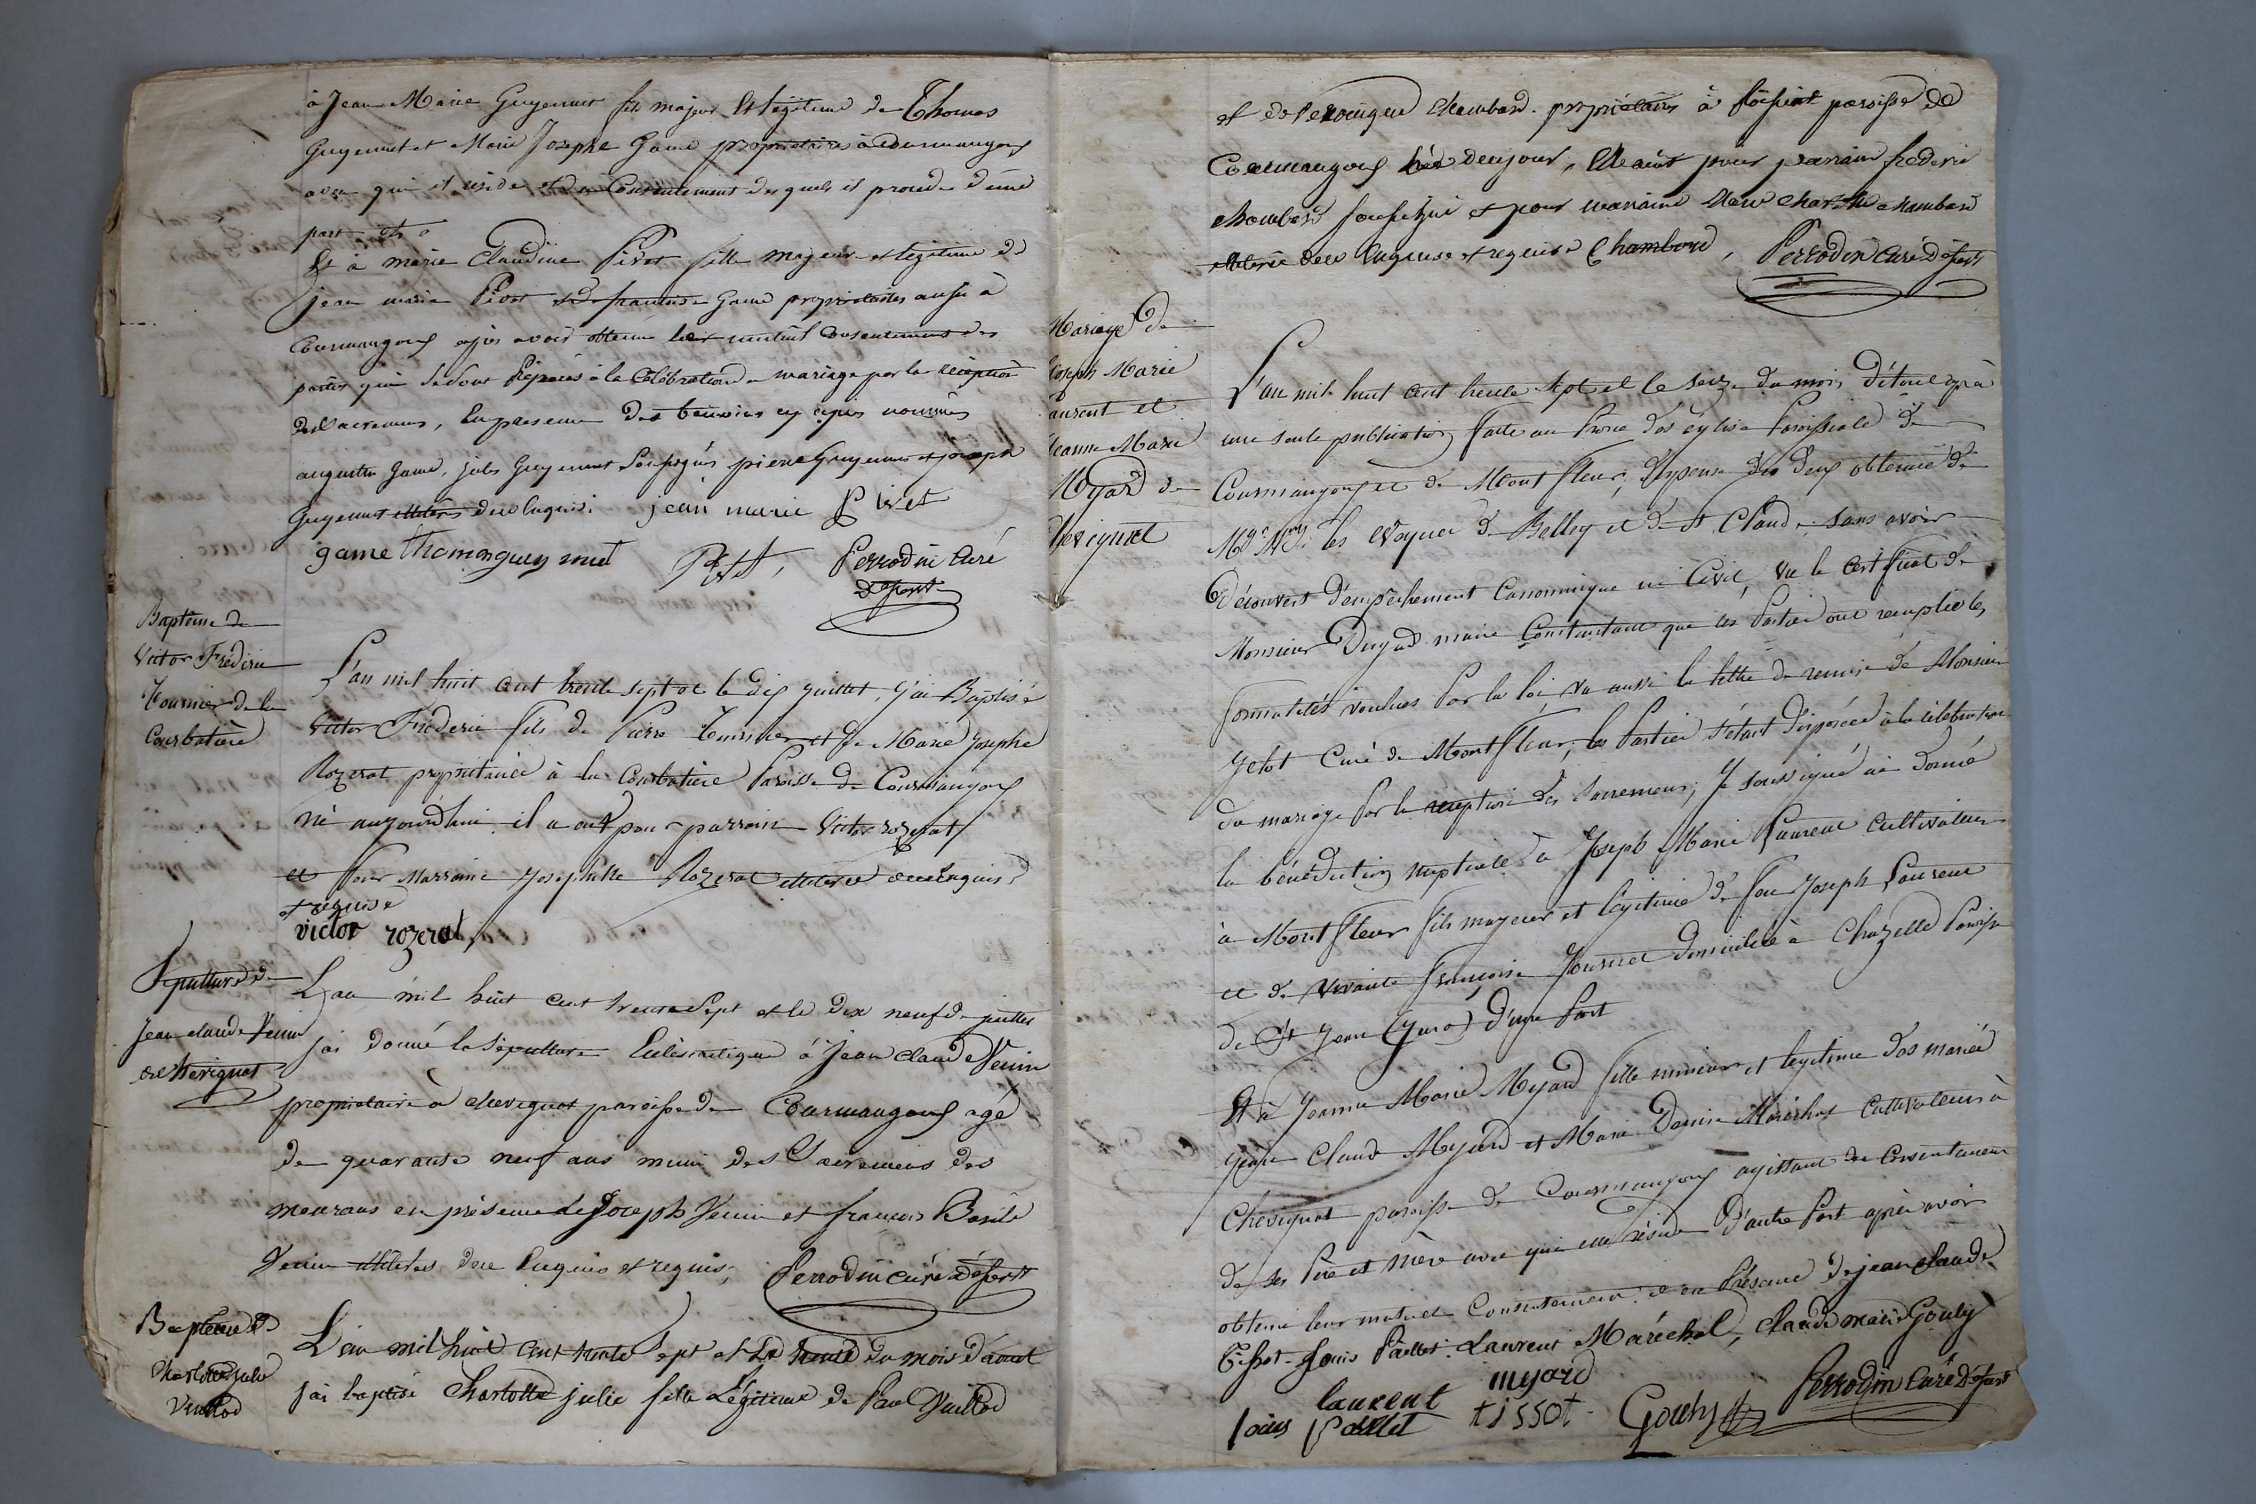 à Jean Marie Guyennet fils majeur et légitime de Thomas
Guyennet et Marie Josephe Game propriétaires à Courmangoux
avec qui il réside et du Consentement desquels il procède d'une
part et
Et à marie Claudine Pivet fille majeure et légitime de
jean marie Pivet et de francoise Game propriétaires aussi à
Courmangoux après avoir obtenu leur mutuel consentement des
parties qui se sont disposées à la Célébration du mariage par la réception
des Sacremens, En presence des témoins cy après nommés
augustin Game, jules Guyennet Soussignés pierre Guyennet et joseph
Guyennet illiterés de ce Enquis.
jean marie Pivet
game thomas guyennet
Pivet, Perrodin Curé
Baptême de
Victor Frédéric
Tournier de la
Courbatière
L'an mil huit cent trente sept et le dix juillet, j'ai Baptisé
Victor Frédéric fils de Pierre Tournier et de Marie Josephe
Rozerat propriétaires à la Courbatière Paroisse de Courmangoux
né aujourd'hui il a eu pour parrain Victor rozerat
et pour Marraine Josephette Rozerat illiterée de ce Enquise
et requise
victor rozerat,
Sépulture de
jean claude Venin
de chevignat
L'an mil huit cent trente Sept et le Dix neuf de juillet
j'ai donné la Sépulture Eclésiastique à Jean claude Venin
propriétaire à chevignat paroisse de Courmangoux agé
de quarante neuf ans muni des Sacremens des
mourans en présence de Joseph Venin et francois Basile
Venin illiterés de ce Enquis et requis, Perrodin curé
Baptême de
Charlotte julie
Vuillod
L'an mil huit cent trente Sept et le trente du mois d'aout
j'ai baptisé Charlotte julie fille Légitime de Paul Vuillod
et de Chambard propriétaires à paroisse de
Courmangoux née de ce jour, Elle a eu pour parrain frederic
chambard soussigné et pour marraine Marie Charlotte chambard
illiterée de ce Enquise et requise Chambard, Perrodin curé
Mariage de
Joseph Marie
Laurent et
Jeanne Marie
Myard de
Chevignat
L'an mil huit cent trente sept et le seize du mois D'
une seule publication faite au Prone des églises Paroissiales de
Courmangoux et de Mont fleur, dispense des deux obtenue de
les Evêques de Belley et de St Claude, sans avoir
Découvert d'empêchement Canonnique ni Civil, vu le Certificat de
Monsieur maire Constatant que les Parties ont rempli les
formalités voulues Par la loi, vu aussi la lettre de remise de Monsieur
Curé de Mont fleur, les Parties s'étant disposées à la célébration
du mariage Par la reception des Sacremens, Je soussigné ai donné
la bénédiction nuptiale à Joseph Marie Laurent Cultivateur
à Mont fleur fils majeur et légitime de feu Joseph Laurent
et de vivante Françoise domiciliée à Chazelle Paroisse
de St Jean (Jura) d'une Part
Et à Jeanne Marie Myard fille mineure et légitime des mariés
Jean Claude Myard et Marie Denise Maréchal Cultivateurs à
Chevignat paroisse de Courmangoux agissant du Consentement
de ses Père et Mère avec qui elle réside D'autre Part après avoir
obtenu leur mutuel Consentement et en Présence de jean claude
Tissot. Louis Paillet. Laurent Maréchal, claude marie Gouly
laurent myard Perrodin Curé
louis Paillet tissot Gouly